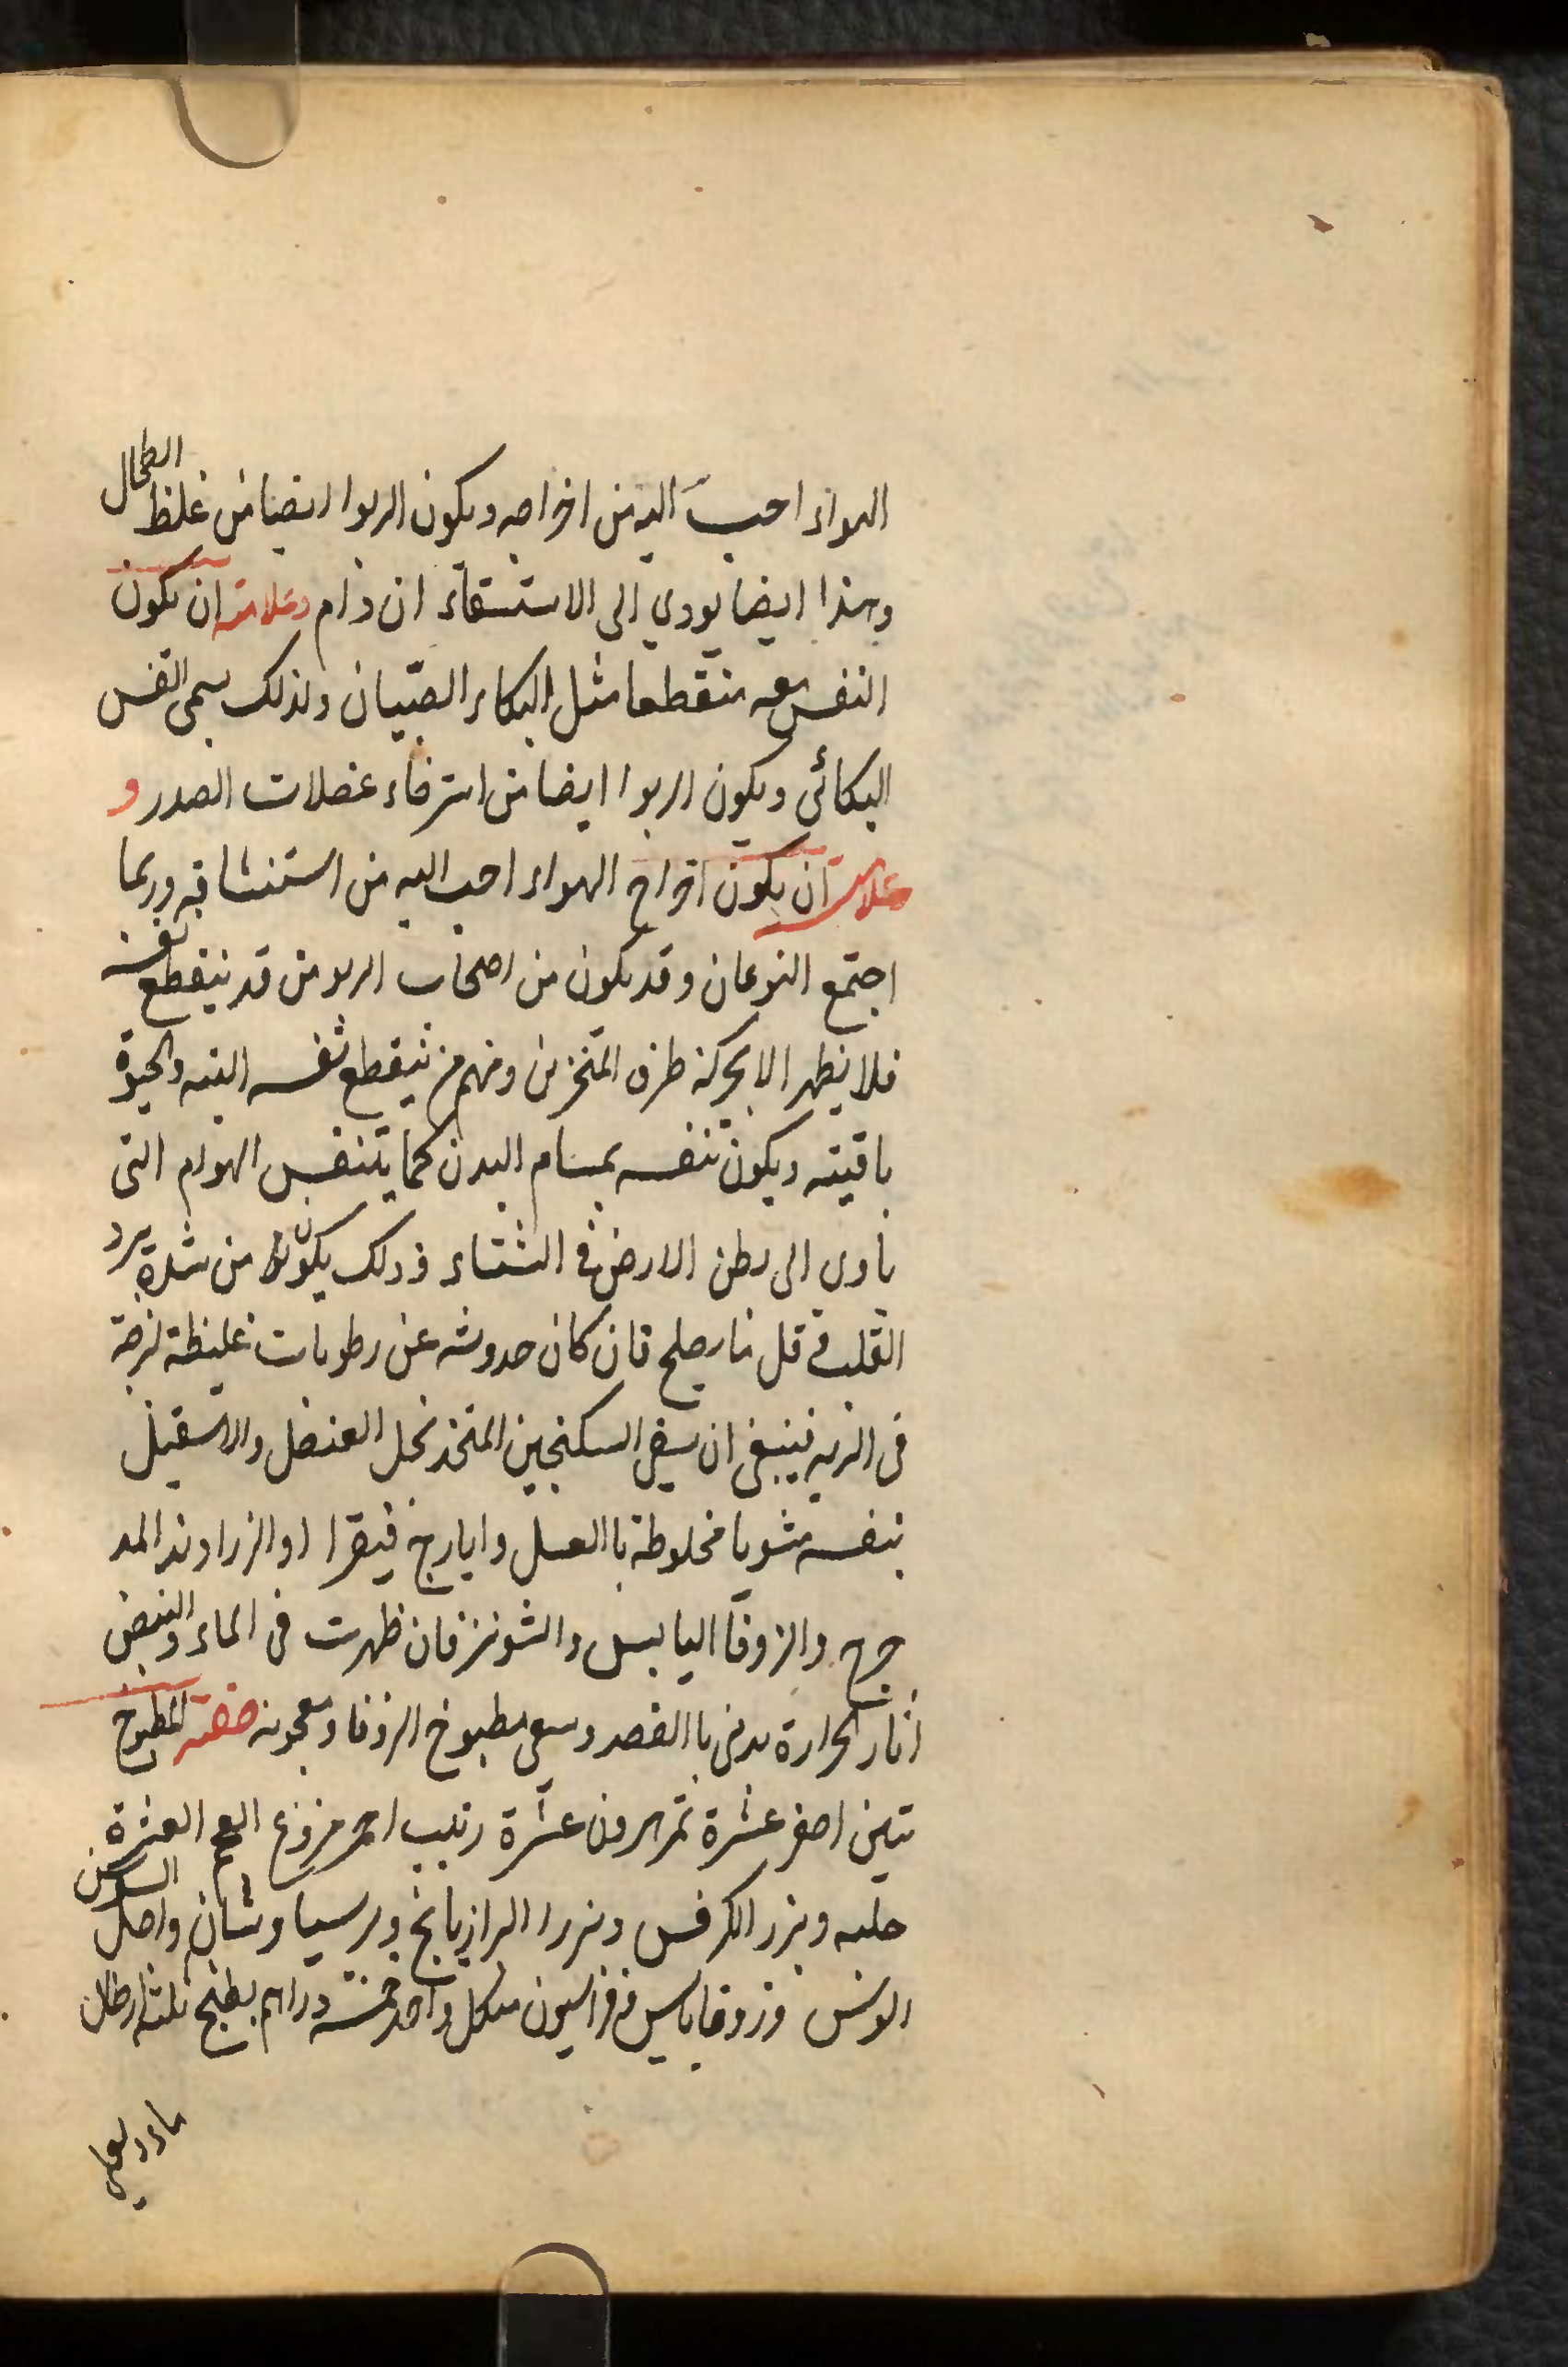 الهواء احب اليه من اخراجه ويكون الربوا ايضا من غلظ الطحال
وهذا ايضا يودي الى الاستسقاء ان دام وعلامته ان يكون
النفس معه منقطعا مثل البكاء الصبيان ولذلك يسمى النفس
البكائى ويكون الربوا ايضا من استرخاء عضلات الصدر و
علامته ان يكون اخراج الهواء احب اليه من استنشاقه وربما
اجتمع النوعان وقد يكون من اصحاب الربو من قد ينقطع نفسه
فلا يظهر الا بحركة طرف المنخرين ومنهم من ينقطع نفسه البته والحيوة
باقيته ويكون تنفسه بمسام البدن كما يتنفس الهوام التى
ياوى الى بطن الارض فى الشتاء وذلك يكون من شدة برد
القلب قل ما يصلح فان كان حدوثه عن رطوبات غليظة لزجة
فى الريه فينبغى ان يسقى السكنجبين المتخذ بخل العنصل والاسقيل
بنفسه مشويا مخلوطة باالعسل وايارج فيقرا او الزراوند المد
حرج والزوفا اليابس والشونيز فان ظهرت فى الماء والنبض
اثار الحرارة بدئ باالفصد وسقى مطبوخ الزوفا ومعجونه صفته المطبوخ
تين اصفر عشرة تمر هيرون عشرة زبيب احمر منزوع العجم العشرة
حلبه وبزر الكرفس وبزر الرازيانج وبرسياوشان واصل السوس
الونس وزوفا يابس وفراسيون من كل واحد خمسة دراهم يطبخ بثلثة ارطال
ماء ويغلى